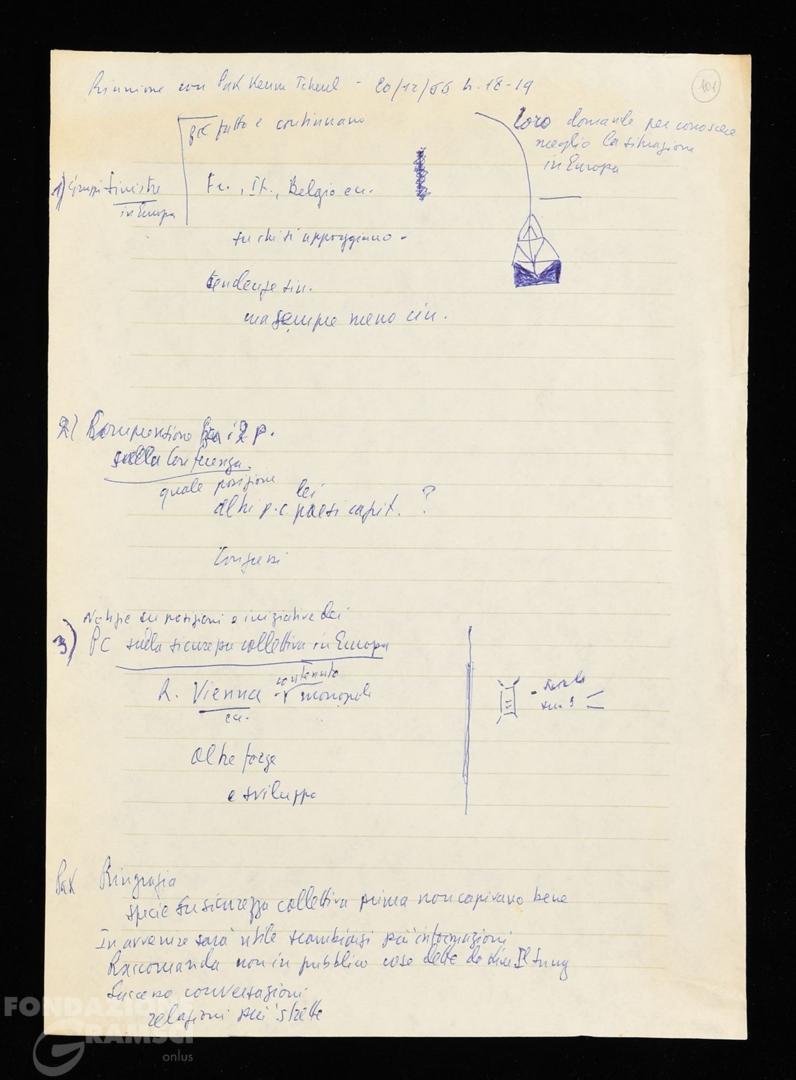 Riunione con Pak - 20/12/ h. 18-19
101
già fatto e continuano
loro domande per conoscere
meglio la situazione
in Europa
1) Gruppi sinistri
in Europa
Fr., It., Belgio ecc.
su chi si appoggiano -
tendenze sin.
ma sempre meno cin.
2)
sulla Conferenza.
quale posizione lei
altri p.c. paesi capit. ?
3) Notizie su posizioni e iniziative dei
PC sulla sicurezza collettiva in Europa
R. Vienna contenuto
monopoli
ecc.
altre forze
e sviluppo
Pak Ringrazia
specie su sicurezza collettiva prima non capivano bene
In avvenire sarà utile scambiarsi più informazioni
Raccomanda non in pubblico cose dette da Kim Il Sung
Successo conversazioni
relazioni più strette
FONDAZIONE
GRAMSCI
onlus